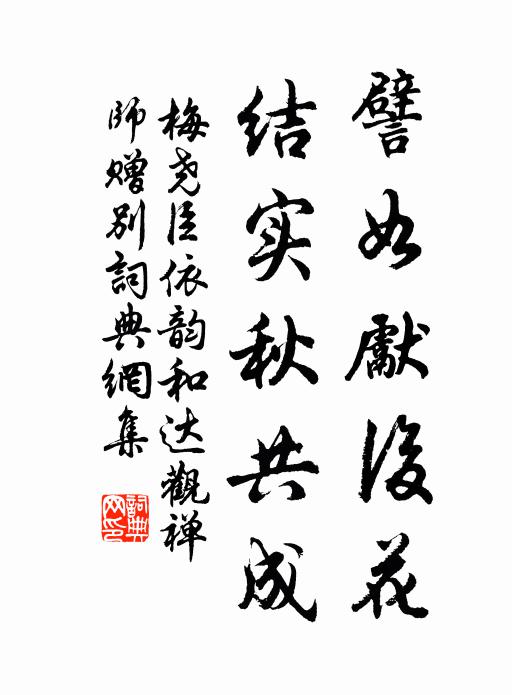 譬如獻後花
结实秋共成
梅尧臣依韵和达觀禅
師赠别詞典網集
詞典网印